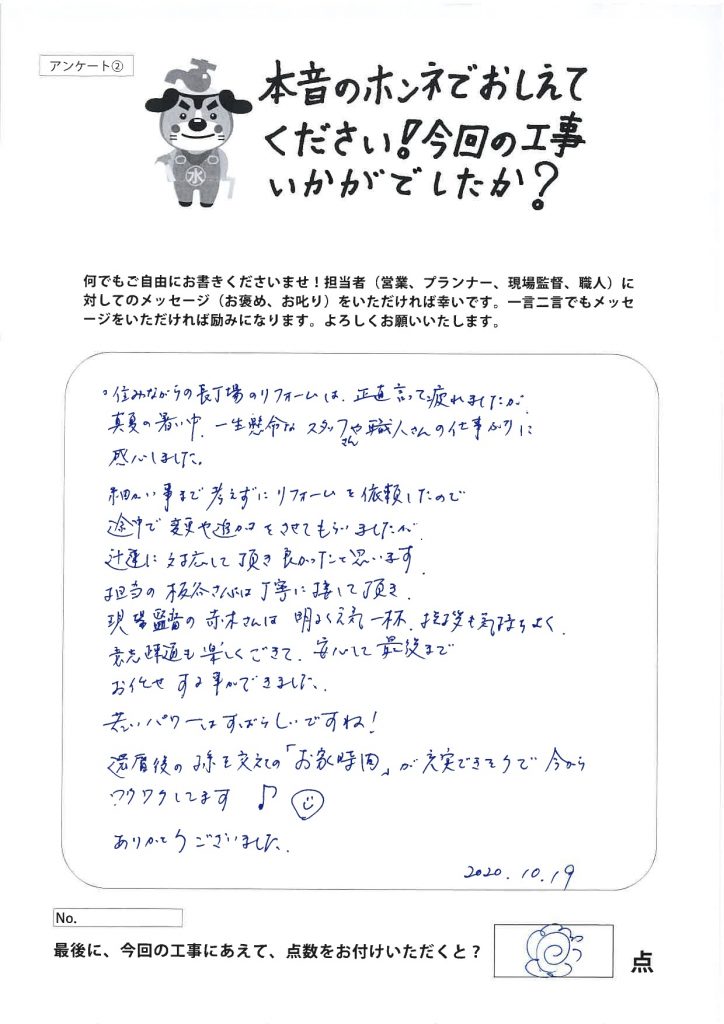 アンケート②
本音のホンネでおしえて
ください!今回の工事
いかがでしたか?
水
何でもご自由にお書きくださいませ!担当者（営業、プランナー、現場監督、職人）に
対してのメッセージ（お褒め、お叱り）をいただければ幸いです。一言二言でもメッセ
ージをいただければ励みになります。よろしくお願いいたします。
。住みながらの長丁場のリフォームは、正直言って疲れましたが、
真夏の暑い中、一生懸命なスタッフさんや職人さんの仕事ぶりに
感心しました。
細かい事まで考えずにリフォームを依頼したので
途中で変更や追加をさせてもらいましたが、
迅速に対応して頂き良かったと思います。
担当の板谷さんは丁寧に接して頂き、
現場監督の赤木さんは明るく元気一杯、挨拶も気持ちよく、
意志疎通も楽しくできて、安心して最後まで
お任せする事ができました。
若いパワーはすばらしいですね!
還暦後の孫を交えての「お家時間」が充実できそうで今から
ワクワクしてます♪
ありがとうございました。
2020.10.19
No.
最後に、今回の工事にあえて、点数をお付けいただくと?
点